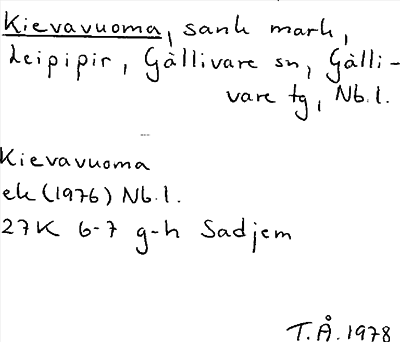 Kievavuoma, sank mark,
Leipipir, Gällivare sn, Gälli-
vare tg, Nb.l.
Kievavuoma
ek (1976) Nb.l.
27K 6-7 g-h Sadjem
T.Å. 1978